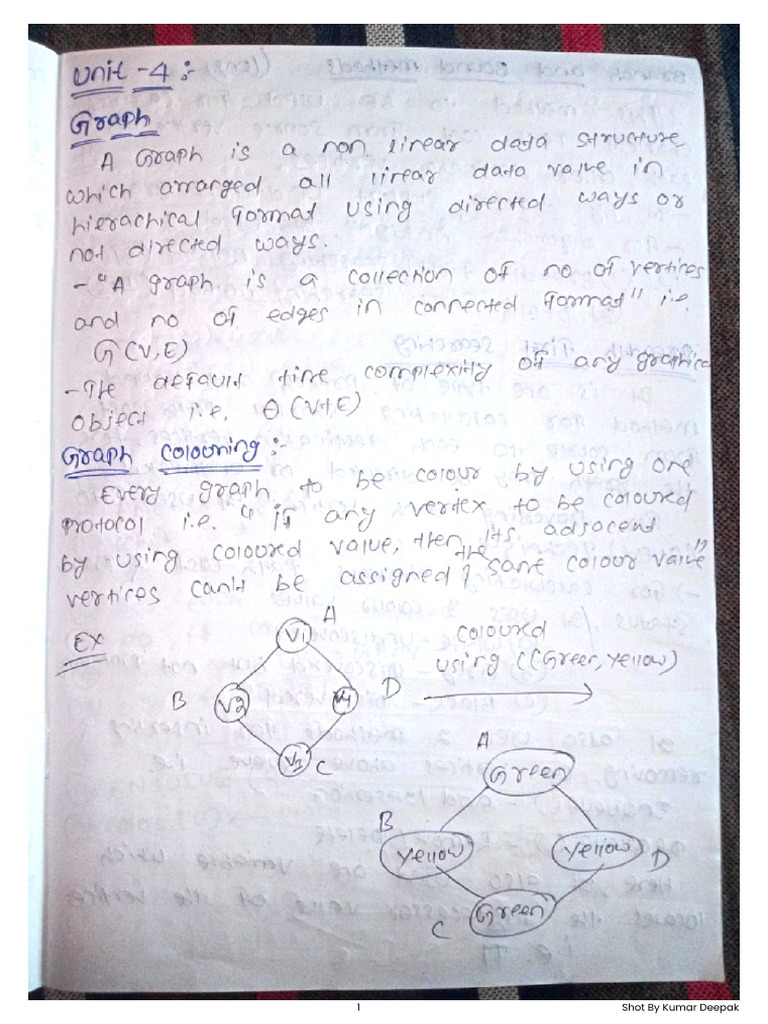 Unit - 4 :-
Graph
A Graph is a non linear data structure
which arranged all linear data value in
hierachical format using directed ways or
not directed ways.
- "A graph is a collection of no of vertices
and no of edges in connected format" i.e.
G(V,E)
- The default time complexity of any graphical
object i.e. Θ(V+E)
Graph Colouring :-
Every graph to be colour by using one
protocol i.e. "if any vertex to be coloured
by using coloured value, then its adjacent
vertices can't be assigned the same colour value"
Ex
A
V1
B
V2
V4
D
V3
C
coloured
using (Green, Yellow)
A
Green
B
Yellow
Yellow
D
Green
C
1
Shot By Kumar Deepak